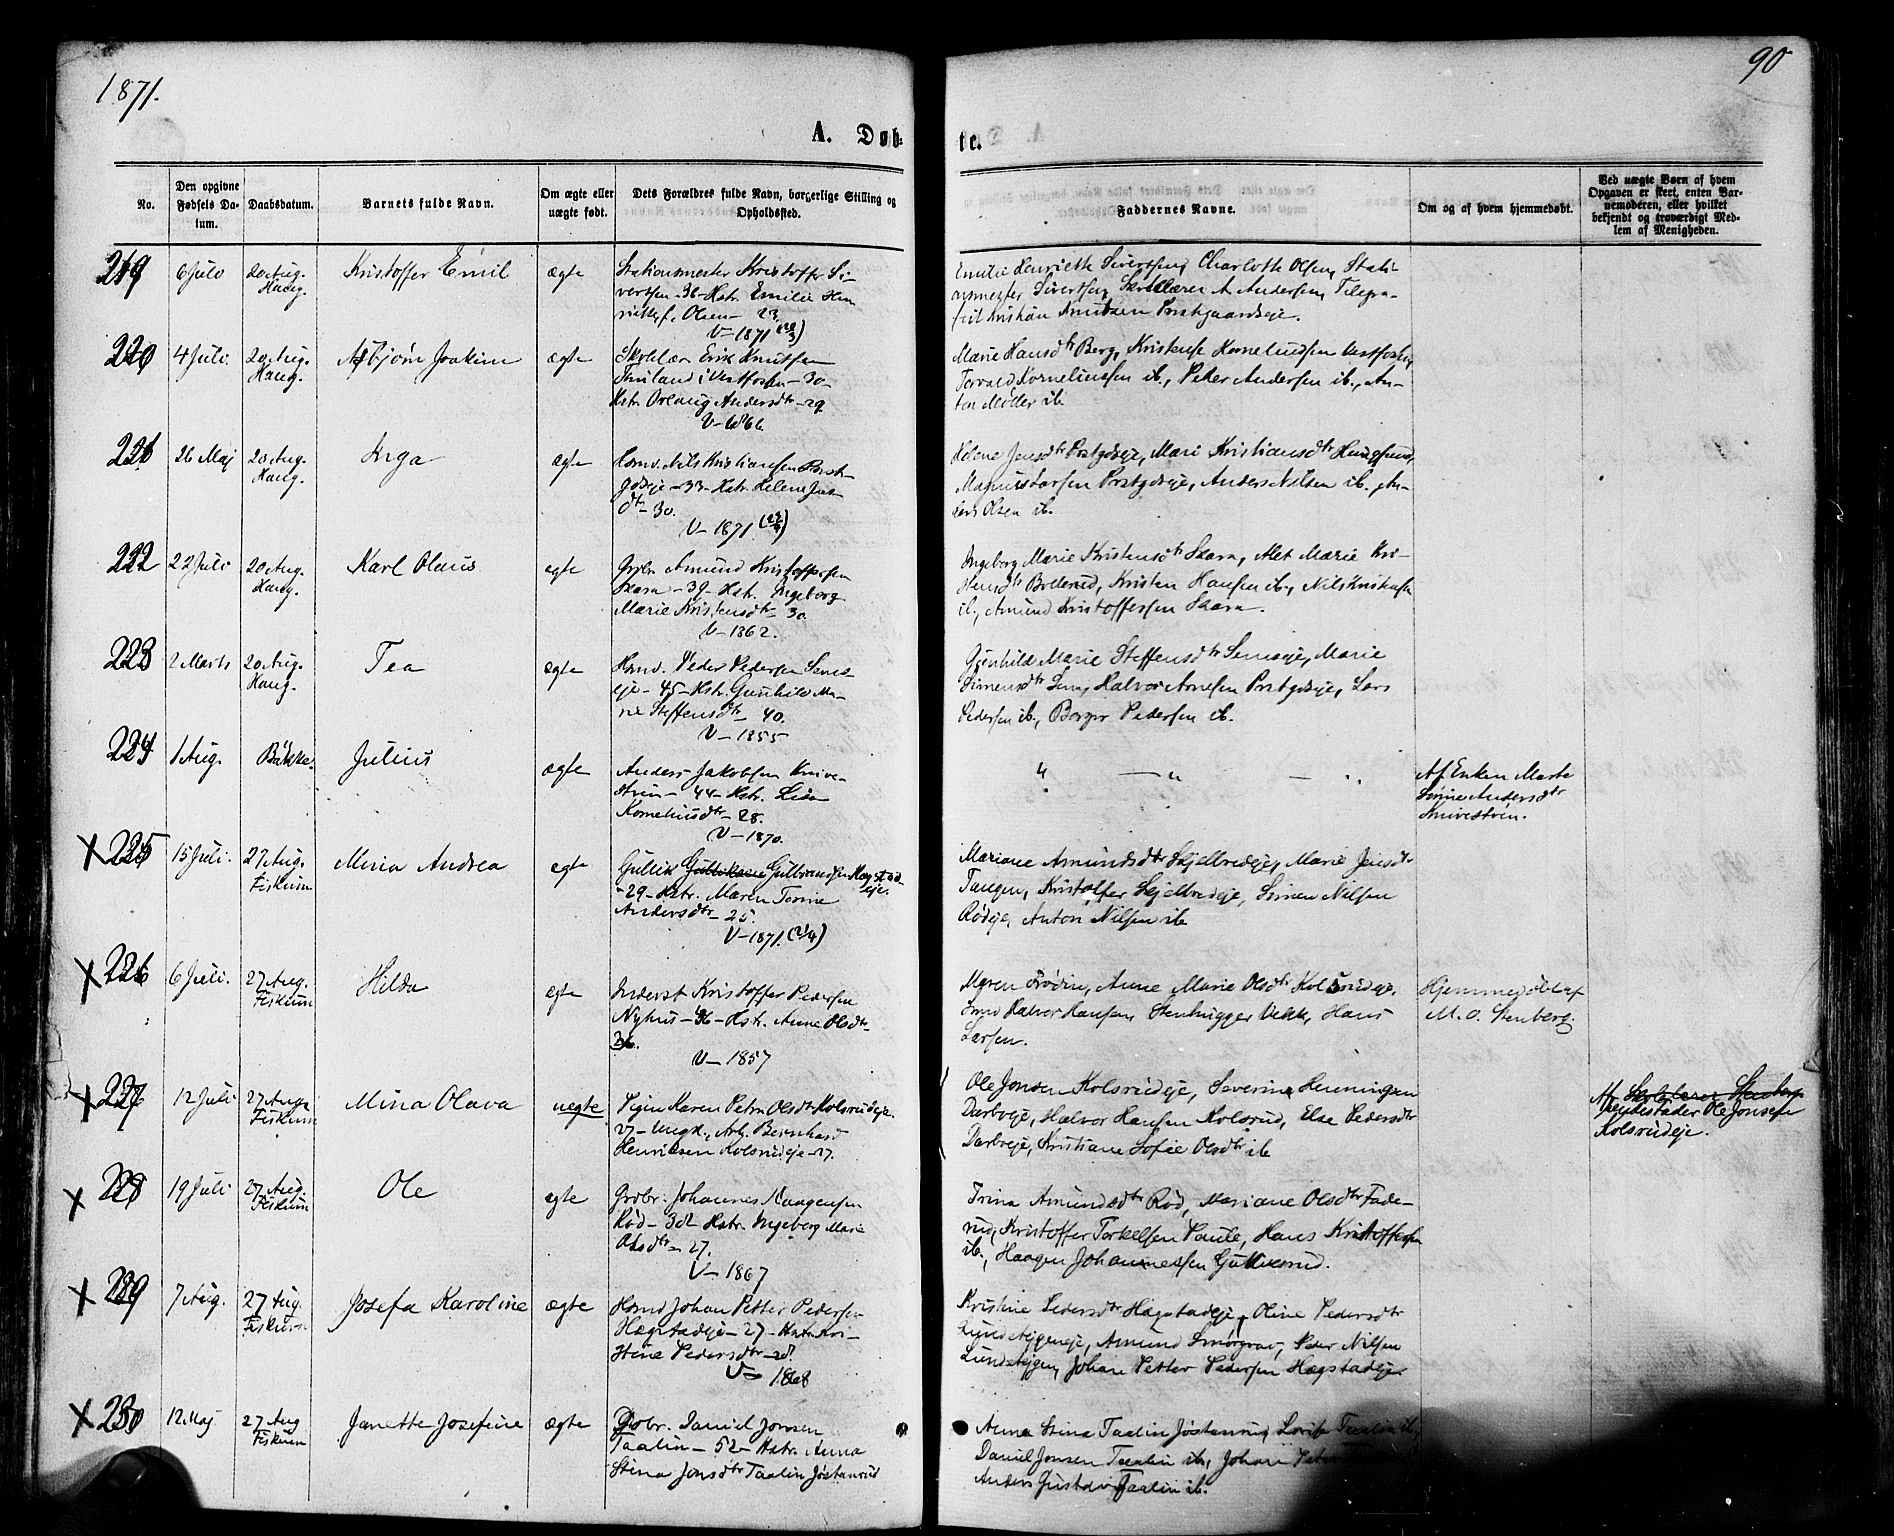 1871.
90
A. Døb-
te.
No.
Den opgivne
Fødsels Da-
tum.
Daabsdatum.
Barnets fulde Navn.
Om ægte eller
uægte født.
Dets Forældres fulde Navn, borgerlige Stilling og
Opholdssted.
Faddernes Navne.
Om og af hvem hjemmedøbt.
Ved uægte Børn af hvem
Opgaven er skeet, enten Bar-
nemoderen, eller hvilket
bekjendt og troværdigt Med-
lem af Menigheden.
219
6 Juli
20 Aug.
Haug.
Kristoffer Emil
ægte
Stationsmester Kristoffer Si-
vertsen - 36 - Hstr. Emilie Hen
riette f. Olsen - 23.
V - 1871
Emilie Henriette Sivertsen, Charlotte Olsen, Stati-
onsmester Sivertsen, Skolelærer A. Andersen, Telegra-
fist Kristian Knutsen Præstgaardseje.
220
4 Juli.
20 Aug.
Haug.
Asbjørn Joakim
ægte
Skolelær. Erik Knutsen
i Vestfossen - 30 -
Hstr. Orlaug Andersdtr - 29
V - 1866.
Marie Hansdtr Berg, Kristense Kornelius­sen Vestfossen,
Torvald Korneliussen ib., Peter Andersen ib., An-
ton Møller ib
221
26 Maj
20 Aug.
Haug.
Inga
ægte
Husm. Nils Kristiansen Præst
gdseje - 33 - Hstr. Helene Jens
dtr - 30.
V - 1871
Helene Jensdtr Præstgdseje, Mari Kristiansdtr Haugsund,
Magnus Larsen Præstgdseje, Anders Nilsen ib., An-
ders Olsen ib.
222
22 Juli
20 Aug.
Haug.
Karl Olaus
ægte
Grbr. Amund Kristoffersen
Skara - 39 - Hstr. Ingeborg
Marie Kristensdtr - 30.
V - 1862.
Ingeborg Marie Kristensdtr Skara, Alet Marie Kri-
stensdtr Bollerud, Kristen Hansen ib., Nils Kristensen
ib., Amund Kristoffersen Skara.
223
2 Marts
20 Aug.
Haug.
Tea
ægte
Husm. Peder Pedersen Sems
eje - 45 - Hstr. Gunhild Ma-
rie Steffensdtr - 40.
V - 1855
Gunhild Marie Steffensdtr Semseje, Marie
Simensdtr Sem, Halvor Arnesen Præstgdseje, Lars
Pedersen ib., Borger Pedersen ib.
224
1 Aug.
Bakke.
Julius
ægte
Anders Jakobsen Knive-
strøm - 44 - Hstr. Lise
Korneliusdtr - 28.
V - 1870.
" — " — "
Af Enken Marte
Sørine Andersdtr
Knivestrøm.
X 225
15 Juli.
27 Aug.
Fiskum
Mina Andrea
ægte
Gullik Gulliksen Gulbrandsen Hagstad
eje.
- 29 - Hstr. Maren Torine
Andersdtr - 25.
V - 1871. (21/4)
Mariane Amundsdtr Skjelbredeje, Marie Jensdtr
Tangen, Kristoffer Skjelbredeje, Simen Nilsen
Rødeje, Anton Nilsen ib
X 226
6 Juli.
27 Aug.
Fiskum
Hilda
ægte
Inderst Kristoffer Pedersen
Nyhus - 36 - Hstr. Anne Olsdtr -
36.
V - 1857
Maren Frødin, Anne Marie Olsdtr Kolsrudeje,
Smed Halvor Hansen, Stenhugger Vekk, Hans
Larsen.
Hjemmedøbt af
M. O. Stenberg.
X 227
12 Juli
27 Aug.
Fiskum
Mina Olava
uegte
Pigen Karen Petra Olsdtr Kolsrudeje.
V - Ungk., Arb. Bernhard
Henriksen Kolsrudeje - 27.
Ole Jonsen Kolsrudeje, Severine Henningsen
Darbøeje, Halvor Hansen Kolsrud, Else Pedersdtr
Darbøeje, Kristiane Sofie Olsdtr ib
Af Skolelærer Stenberg
Ole Jonsen
Kolsrudeje.
X 228
19 Juli
27 Aug.
Fiskum
Ole
ægte
Grdbr. Johannes Haagensen
Rød - 32 Hstr. Ingeborg Marie
Olsdtr - 27.
V - 1867
Trina Amundsdtr Rød, Mariane Olsdtr Fade-
rud, Kristoffer Torkelsen Paule, Hans Kristoffersen
ib., Haagen Johannessen Gulliksrud.
X 229
7 Aug.
27 Aug.
Fiskum
Josefa Karoline
ægte
Husmd Johan Petter Pedersen
Hægstadeje - 27 - Hstr. Kri-
stine Pedersdtr - 28.
V - 1868
Kristine Pedersdtr Hægstadeje, Oline Pedersdtr
Lundstejgeneje, Amund Smørgrav, Peder Nilsen
Lundstejgen, Johan Petter Pedersen Hægstadeje
X 230
12 Maj
27 Aug
Fiskum
Janette Josefine
ægte
Grbr. Daniel Jonsen
Taalin - 52 - Hstr. Anna
Stina Jonsdtr Taalin Jøstanrud
Anna Stina Taalin Jøstanrud, Lovisa Taalin ib,
Daniel Jonsen Taalin ib, Johan Peter
Anders Gustav Taalin ib.